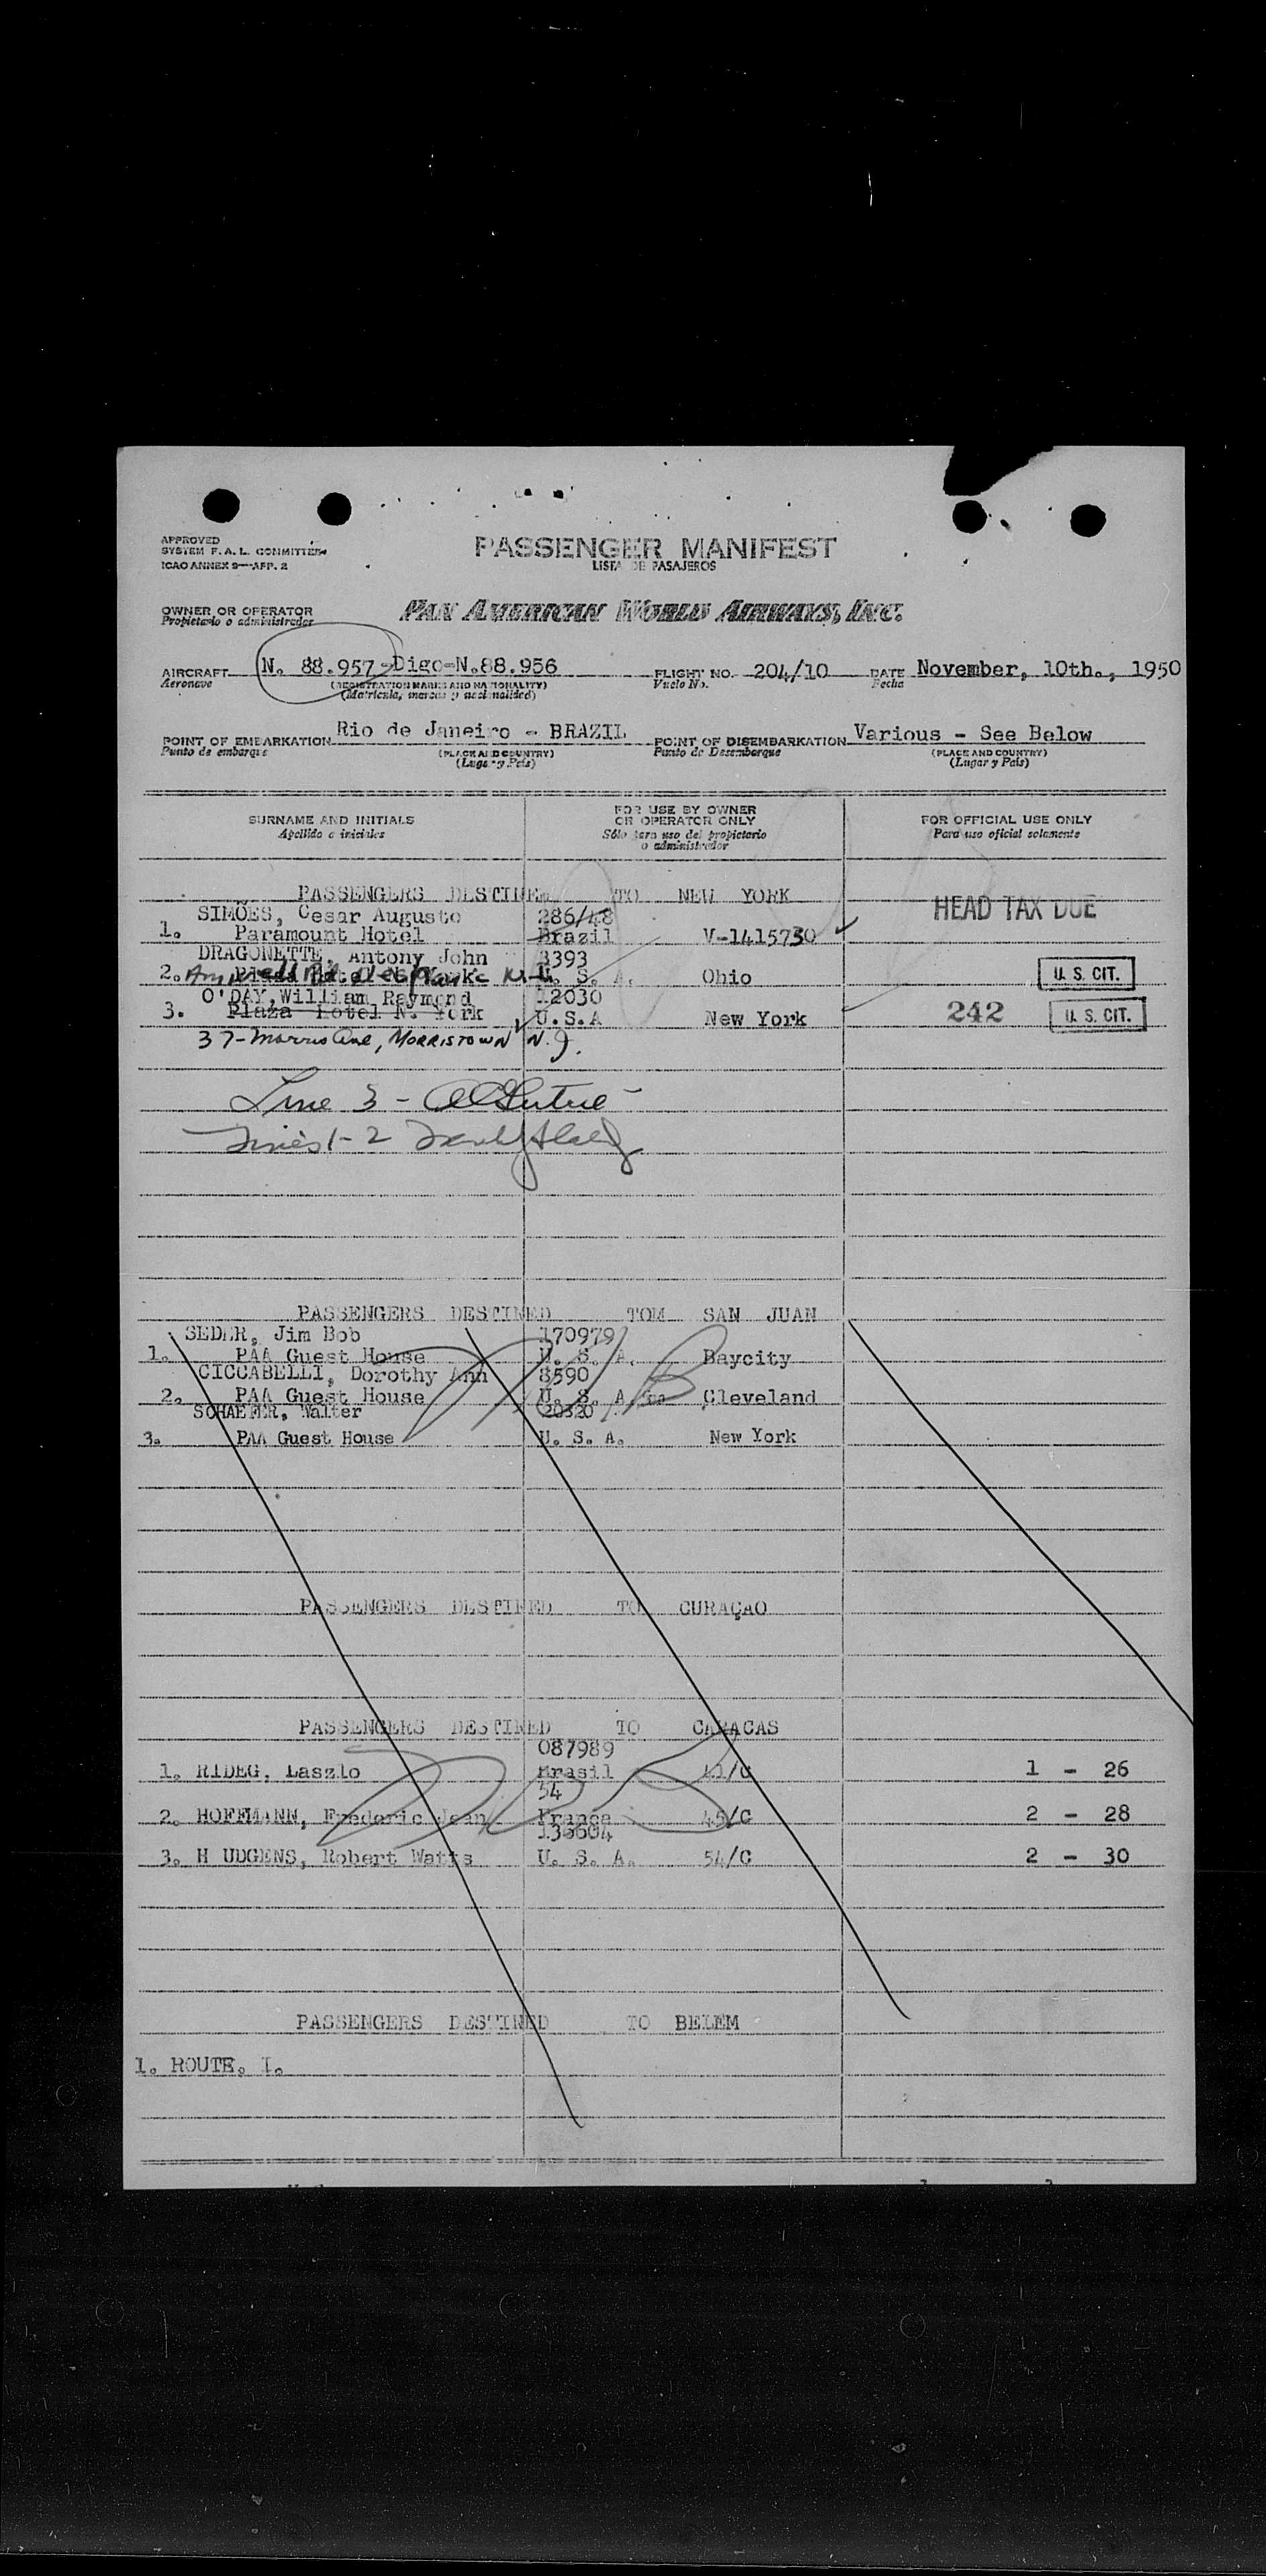 APPROVED
SYSTEM F. A. L. COMMITTEE
ICAO ANNEX 9—APP. 2
PASSENGER MANIFEST
LISTA DE PASAJEROS
OWNER OR OPERATOR
Propietario o administrador
PAN AMERICAN WORLD AIRWAYS, INC.
AIRCRAFT N. 88.957-Digo-N.88.956 FLIGHT NO. 204/10 DATE November, 10th., 1950
Aeronave (REGISTRATION MARKS AND NATIONALITY) Vuelo No. Fecha
(Matrícula, marcas y nacionalidad)
POINT OF EMBARKATION Rio de Janeiro - BRAZIL POINT OF DISEMBARKATION Various - See Below
Punto de embarque (PLACE AND COUNTRY) Punto de Desembarque (PLACE AND COUNTRY)
(Lugar y País) (Lugar y País)
SURNAME AND INITIALS FOR USE BY OWNER OR OPERATOR ONLY FOR OFFICIAL USE ONLY
Apellido e iniciales Sólo para uso del propietario o administrador Para uso oficial solamente
PASSENGERS DESTINED TO NEW YORK
SIMÕES, Cesar Augusto 286/48 HEAD TAX DUE
1. Paramount Hotel Brazil V-1415730
DRAGONETTE, Antony John 3393
2. U. S. A. Ohio U. S. CIT.
O'DAY, William Raymond 12030
3. Plaza Hotel N. York U.S.A New York 242 U. S. CIT.
37-Morris Ave, MORRISTOWN N.J.
Line 3 -
Lines 1-2
PASSENGERS DESTINED TOM SAN JUAN
SEDER, Jim Bob 170979
1. PAA Guest House U. S. A. Baycity
CICCABELLI, Dorothy Ann 8590
2. PAA Guest House U. S. A. Cleveland
SCHAEFER, Walter 20320
3. PAA Guest House U. S. A. New York
PASSENGERS DESTINED TO CURAÇAO
PASSENGERS DESTINED TO CARACAS
087989
1. RIDEG, Laszlo Brasil 41/C 1 - 26
54
2. HOFFMANN, Frederic Jean França 45/C 2 - 28
136604
3. H UDGENS, Robert Watts U. S. A. 54/C 2 - 30
PASSENGERS DESTINED TO BELEM
1. ROUTE, I.